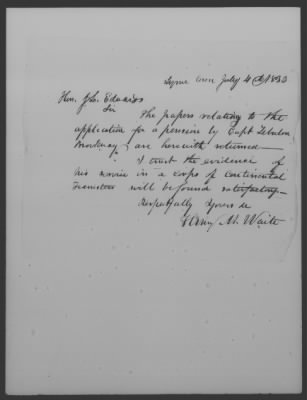 Lyme Conn July 4th 1833
Hon. J L. Edwards
Sir
The papers relating to the
application for a pension by Capt Zebulon
are herewith returned —
I trust the evidence of
his service in a corps of continental
will be found satisfactory —
Respectfully Yours &c
Henry M. Waite